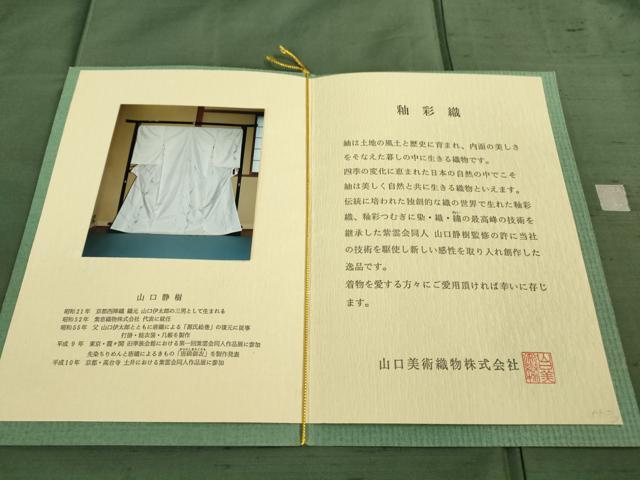 山口静樹
昭和21年 京都西陣織 織元 山口伊太郎の三男として生まれる
昭和52年 紫紘織物株式会社 代表に就任
昭和55年 父 山口伊太郎とともに唐織による「源氏絵巻」の復元に従事
打掛・能衣装・几帳を製作
平成 9年 東京・霞ヶ関 旧華族会館における第一回紫雲会同人作品展に参加
先染ちりめんと唐織によるきもの「唐織御衣」を製作発表
平成10年 京都・高台寺 土井における紫雲会同人作品展に参加
釉彩織
紬は土地の風土と歴史に育まれ、内面の美しさ
をそなえた暮しの中に生きる織物です。
四季の変化に恵まれた日本の自然の中でこそ
紬は美しく自然と共に生きる織物といえます。
伝統に培われた独創的な織の世界で生れた釉彩
織、釉彩つむぎに染・織・繍の最高峰の技術を
継承した紫雲会同人 山口静樹監修の許に当社
の技術を駆使し新しい感性を取り入れ創作した
逸品です。
着物を愛する方々にご愛用頂ければ幸いに存じ
ます。
山口美術織物株式会社